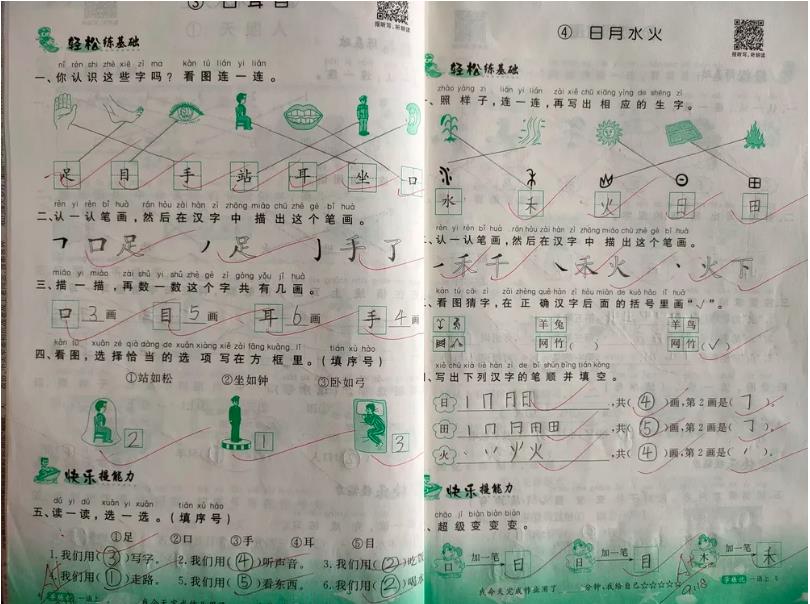 ③ 口耳目
轻松练基础
nǐ rèn shi zhè xiē zì ma kàn tú lián yi lián
一、你认识这些字吗？看图连一连。
足 目 手 站 耳 坐 口
rèn yi rèn bǐ huà rán hòu zài hàn zì zhōng miáo chū zhè gè bǐ huà
二、认一认笔画，然后在汉字中描出这个笔画。
㇕ 口 足 丿 足 亅 手 了
miáo yi miáo zài shǔ yi shǔ zhè gè zì gòng yǒu jǐ huà
三、描一描，再数一数这个字共有几画。
口 3 画 目 5 画 耳 6 画 手 4 画
kàn tú xuǎn zé qià dàng de xuǎn xiàng xiě zài fāng kuàng lǐ tián xù hào
四、看图，选择恰当的选项写在方框里。(填序号)
①站如松 ②坐如钟 ③卧如弓
2 1 3
快乐提能力
dú yi dú xuǎn yi xuǎn tián xù hào
五、读一读，选一选。(填序号)
①足 ②口 ③手 ④耳 ⑤目
1. 我们用(③)写字。 2. 我们用(④)听声音。 3. 我们用(②)吃饭
4. 我们用(①)走路。 5. 我们用(⑤)看东西。 6. 我们用(②)喝水
④ 日月水火
轻松练基础
zhào yàng zi lián yi lián zài xiě chū xiāng yìng de shēng zì
、照样子，连一连，再写出相应的生字。
水 禾 火 日 田
rèn yi rèn bǐ huà rán hòu zài hàn zì zhōng miáo chū zhè gè bǐ huà
、认一认笔画，然后在汉字中描出这个笔画。
㇀ 禾 千 ㇏ 禾 火 丶 火 下
kàn tú cāi zì zài zhèng què hàn zì hòu miàn de kuò hào lǐ huà
、看图猜字，在正确汉字后面的括号里画“√”。
羊兔 羊鸟
网竹 ( ) 网竹 (√)
xiě chū xià liè hàn zì de bǐ shùn bìng tián kòng
、写出下列汉字的笔顺并填空。
日 丨 冂 日 日 ，共(④)画，第2画是(㇕)。
田 丨 冂 日 田 田 ，共(⑤)画，第2画是(㇕)。
火 丶 丷 火 ，共(④)画，第2画是(丿)。
快乐提能力
chāo jí biàn biàn biàn
、超级变变变。
口 加一笔 日 日 加一笔 目 木 加一笔 禾
我今天完成作业用了 分钟，我给自己☆☆☆☆☆